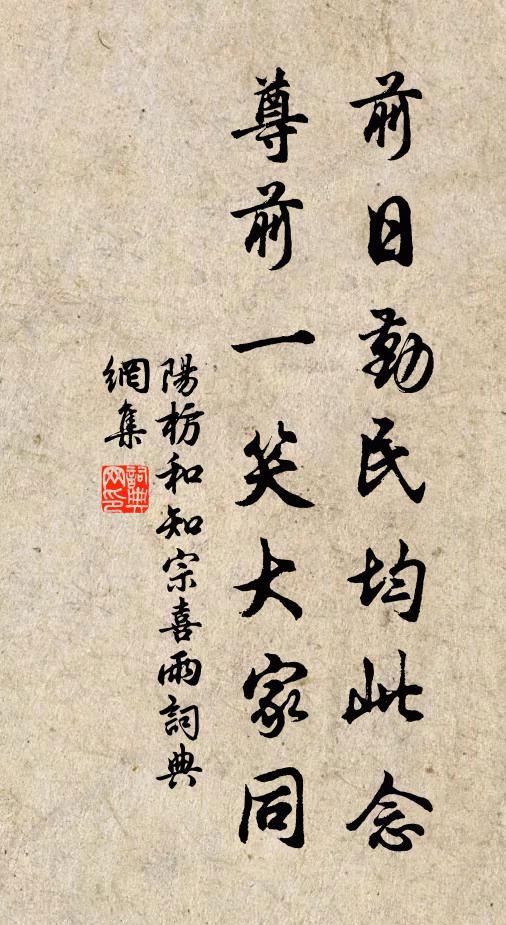 前日勤民均此念
尊前一笑大家同
陽枋和知宗喜雨詞典
網集
詞典網印